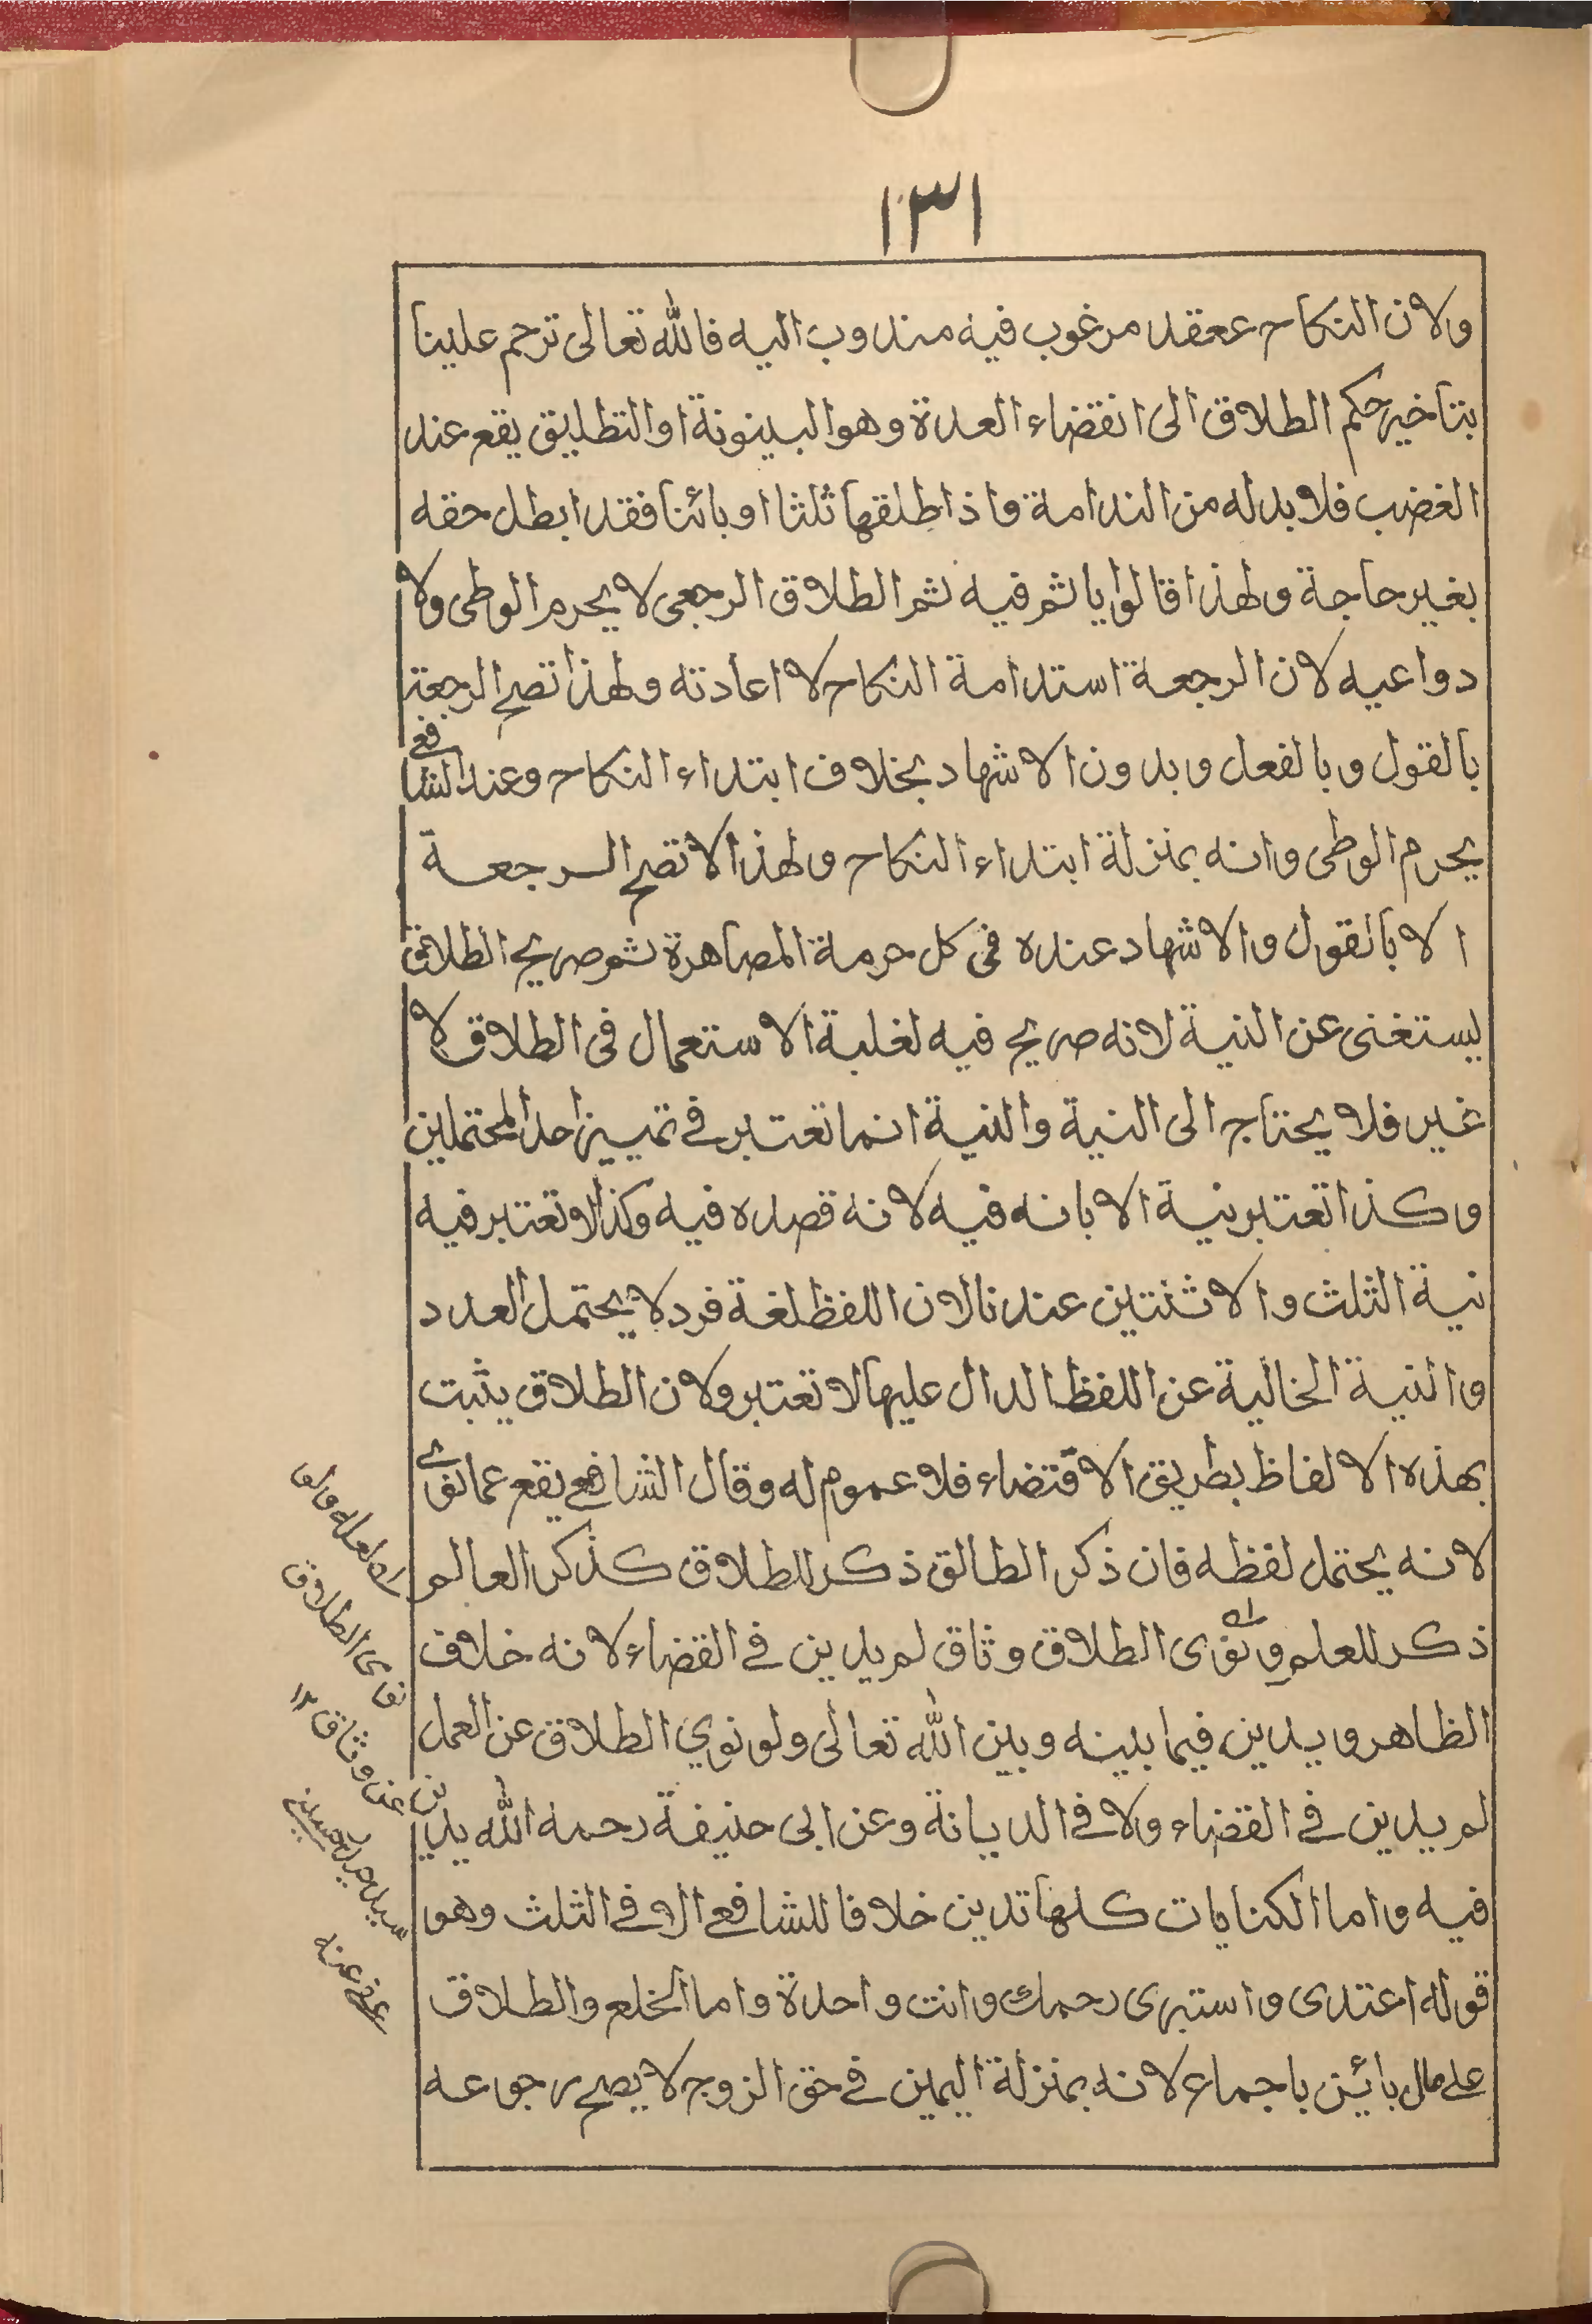 ١٣١
ولان النكاح ععقد مرغوب فيه مندوب اليه فالله تعالى ترحم علينا
بتاخير حكم الطلاق الى انقضاء العدة وهو البينونة او التطليق يقع عند
الغضب فلا بد له من الندامة فاذا طلقها ثلثا او بائنا فقد ابطل حقه
بغير حاجة ولهذا قالوا ياثم فيه ثم الطلاق الرجعى لا يحرم الوطى ولا
دواعيه لان الرجعة استدامة النكاح لا اعادته ولهذا تصح الرجعة
بالقول وبالفعل وبدون الاشهاد بخلاف ابتداء النكاح وعند الشافعے
يحرم الوطى وانه بمنزلة ابتداء النكاح ولهذا لا تصح الرجعة
الا بالقول والاشهاد عنده فى كل حرمة المصاهرة ثم صريح الطلاق
يستغنى عن النية لانه صريح فيه لغلبة الاستعمال فى الطلاق لا
غير فلا يحتاج الى النية والنية انما تعتبر فے تمييز احد المحتملين
وكذا تعتبر نية الابانه فيه لانه قصده فيه وكذا لا تعتبر فيه
نية الثلث والاثنتين عندنا لان اللفظ لغة فرد لا يحتمل العدد
والنية الخالية عن اللفظ الدال عليها لا تعتبر ولان الطلاق يثبت
بهذه الالفاظ بطريق الاقتضاء فلا عموم له وقال الشافعے يقع عما نوے
لانه يحتمل لفظه فان ذكر الطالق ذكر للطلاق كذكر العالم
ذكر للعلم و نوى الطلاق وثاق لم يدين فے القضاء لانه خلاف
الظاهر ويدين فيما بينه وبين الله تعالى ولو نوي الطلاق عن العمل
لم يدين فے القضاء ولا فے الديانة وعن ابى حنيفة رحمه الله يدين
فيه واما الكنايات كلها تدين خلافا للشافعے الا فے الثلث وهو
قوله اعتدى واستبرى رحمك وانت واحدة واما الخلع والطلاق
علے مال بائن باجماع لانه بمنزلة اليمين فے حق الزوج لا يصح رجوعه
لعله ولو
نوى الطلاق
عن وثاق ١٢
عفے عنه